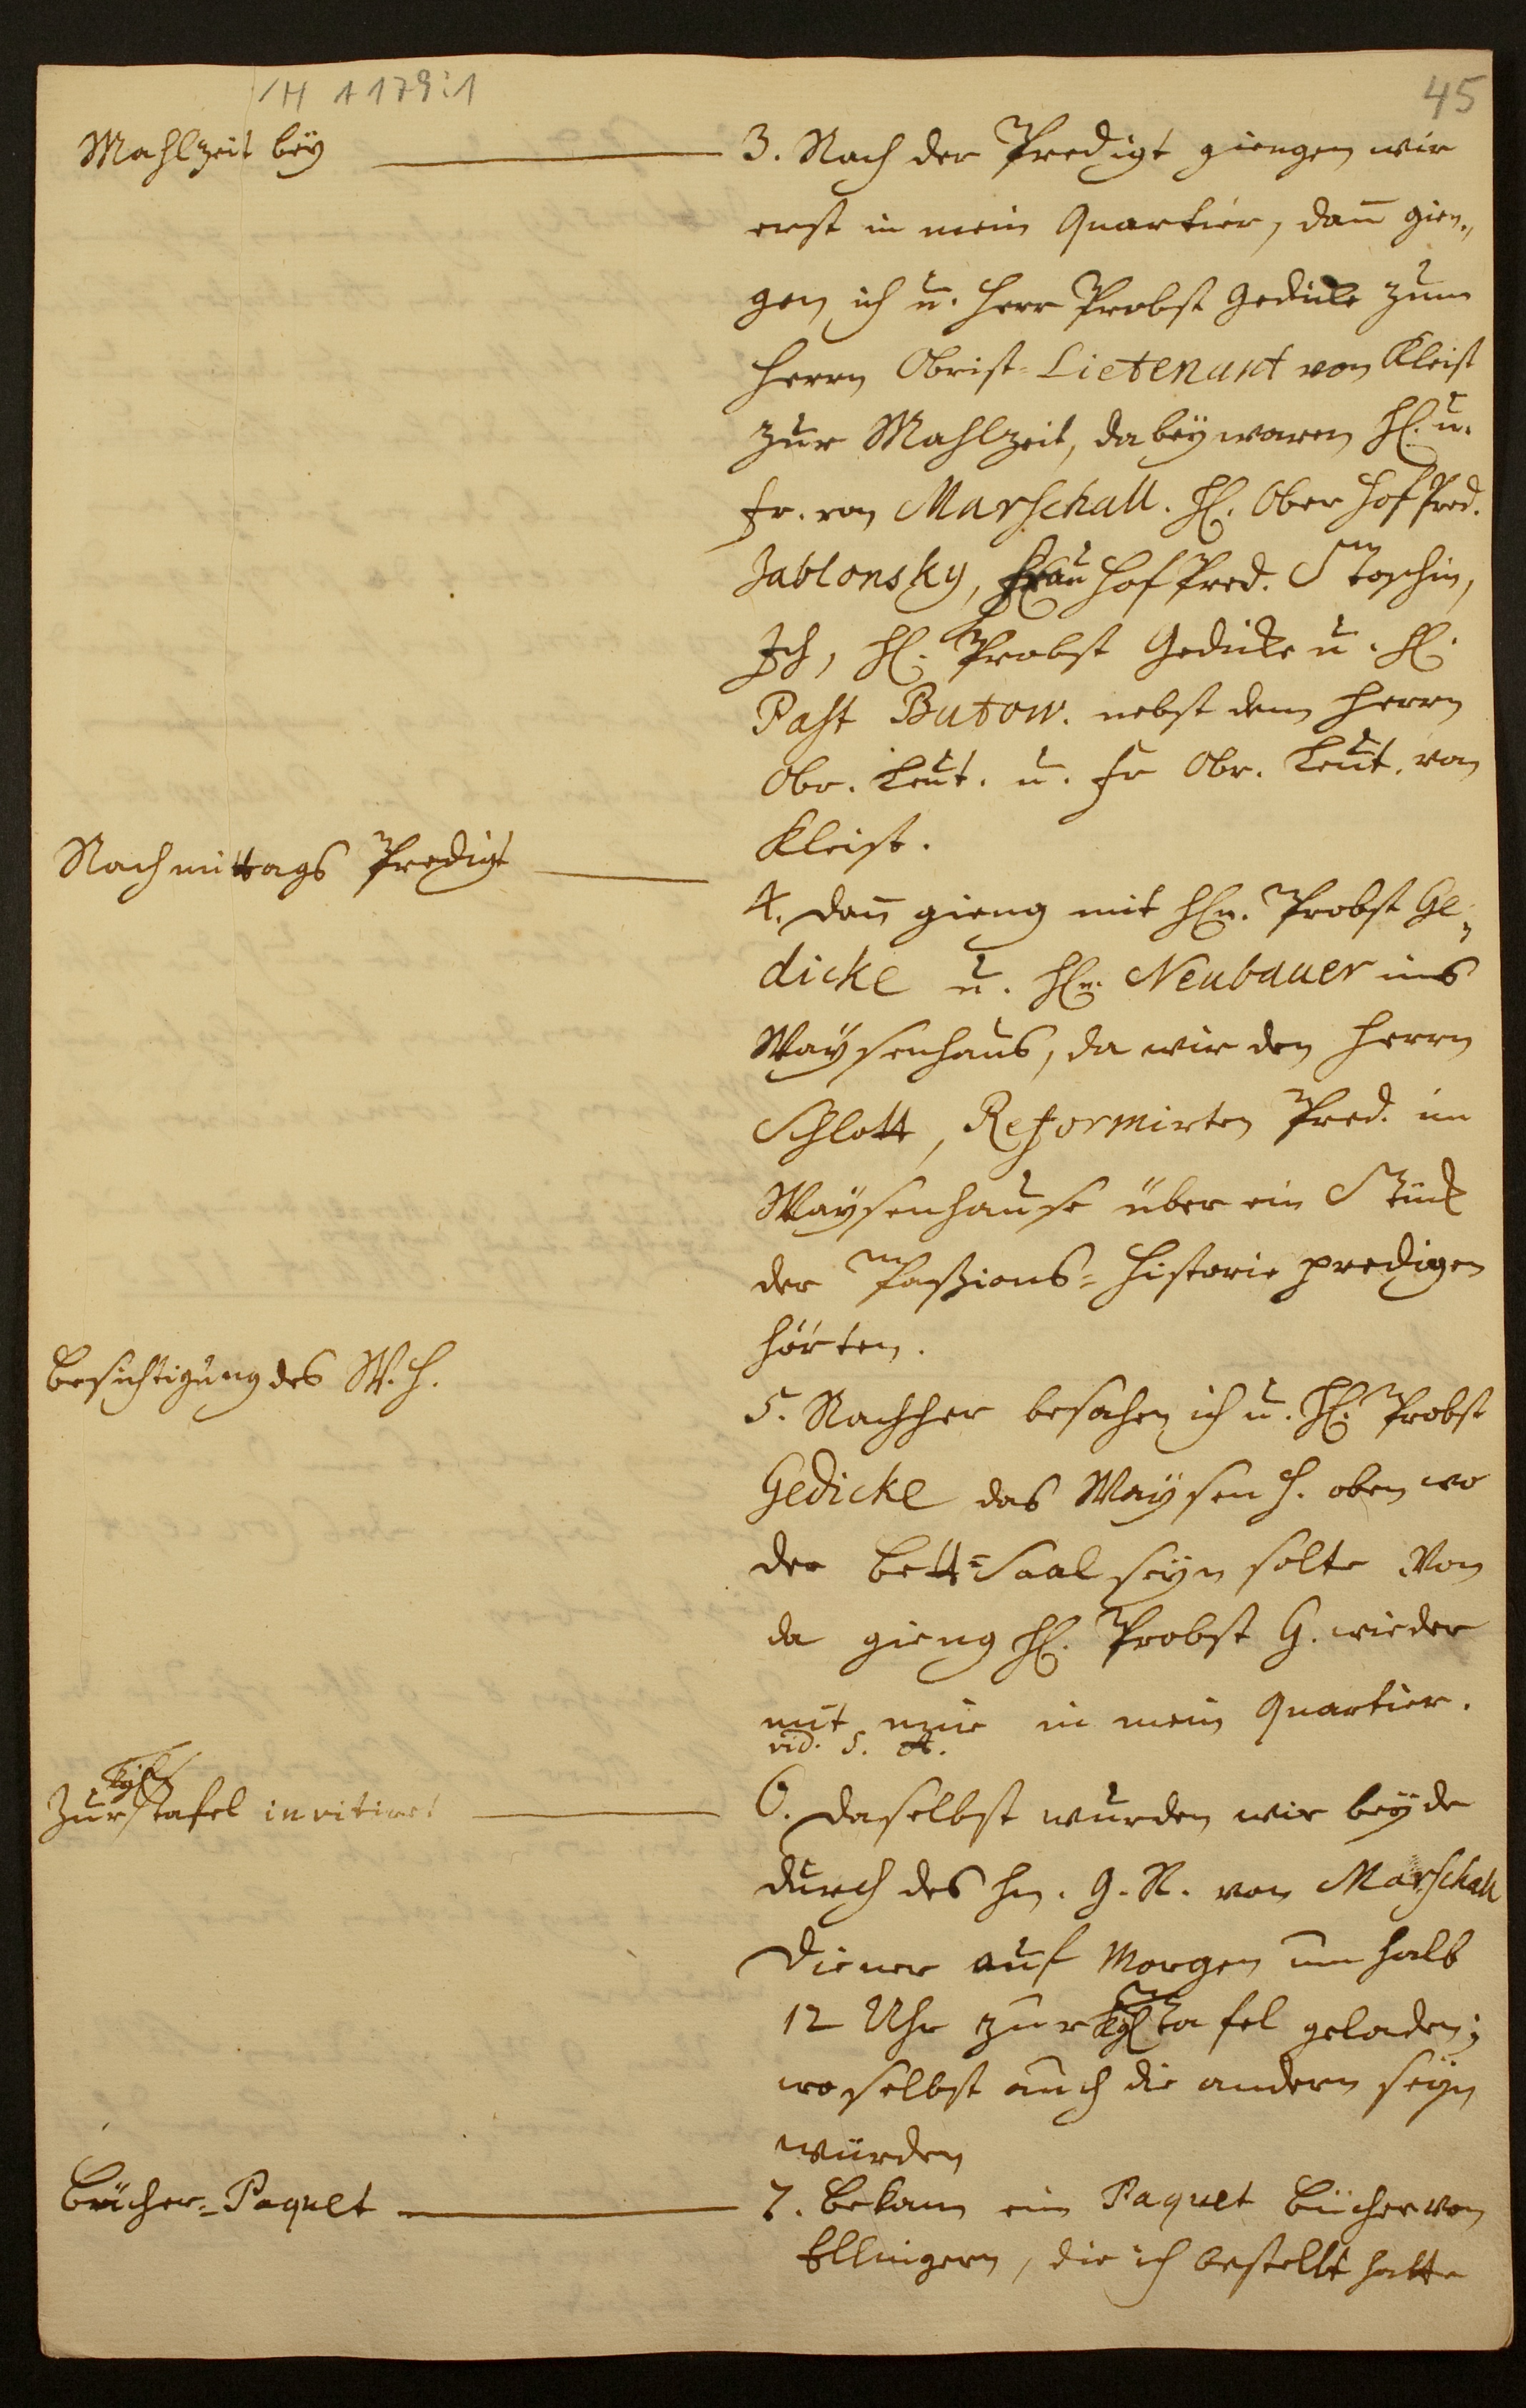 /H A 179:1
45
Mahlzeit beÿ
3. Nach der Predigt giengen wir
erst in mein Quartier, dan̅ gien„
gen ich u. Herr Probst Gedicke zum
Herrn Obrist-Lietenant von Kleist
zur Mahlzeit, dabeÿ waren H. u.
Fr. von Marschall. H. Ober Hof Pred.
Jablonsky, Frau Hof Pred. Stoschin,
Ich, H. Probst Gedicke u. H.
Past Butow. nebst dem Herrn
Obr. Leut. u. Fr Obr. Leut. von
Kleist.
Nachmittags Predigt
4. Dan̅ gieng mit Hn. Probst Ge„
dicke u. Hn. Neubauer ins
Waÿsenhaus, da wir den Herrn
Schlott, Reformirten Pred. im
Waÿsenhause über ein Stück
der Paßions-Historie predigen
hörten.
Besichtigung des W. H.
5. Nachher besahen ich u. H. Probst
Gedicke das Waÿsen H. oben wo
der Bett-Saal seÿn solte Von
da gieng H. Probst G. wieder
mit mir in mein Quartier.
vid. 5. A.
Zur Kgl tafel invitiret
6. Daselbst wurden wir beÿde
durch des Hn. G. R. von Marschall
Diener auf Morgen um halb
12 Uhr zur Kgl Tafel geladen;
woselbst auch die andern seÿn
würden
Bücher-Paquet
7. Bekam ein Paquet Bücher von
Ellingern, die ich bestellt hatte